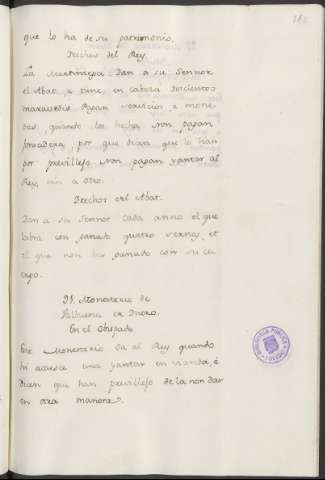 180
que lo ha de su patrimonio.
Drechos del Rey.
La Martiniega Dan a su Sennor
el Abat, e tiene, en cabeza docientos
maravedis Pagan servicios e mone
das, quando los hecha, non pagan
fonsadera, por que dizen que lo han
por previllejo, Non pagan yantar al
Rey, nin a otro.
Drechos del Abat.
Dan a su Sennor cada anno el que
labra con ganado quatro sernas, et
el que non ha ganado con su cu
erpo.
Monesterio de
Valbuena de Duero.
En el Obispado
Este Monesterio Da al Rey quando
hi acaesce una yantar en vianda, é
dicen que han previllejo de la non dar
en otra manera.
BIBLIOTECA PUBLICA
TOLEDO